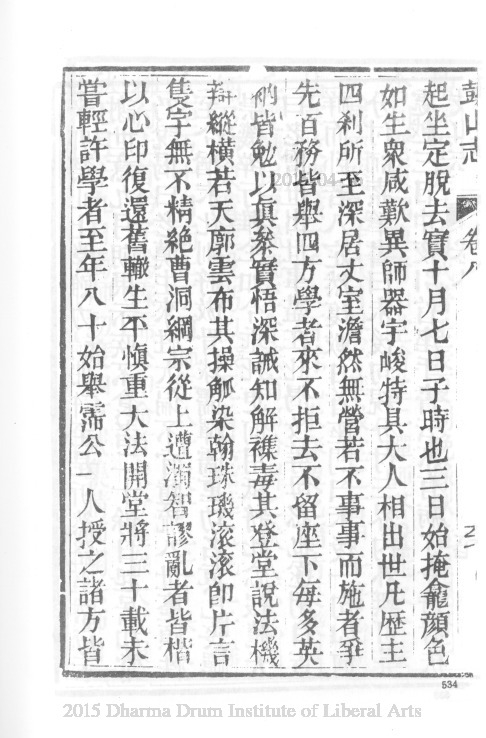 鼓山志
卷八
起坐定脫去實十月七日子時也三日始掩龕顏色
如生衆咸歎異師器宇峻特具大人相出世凡歷主
四剎所至深居丈室澹然無營若不事事而施者爭
先百務皆舉四方學者來不拒去不留座下每多英
衲皆勉以眞叅實悟深誡知解襍毒其登堂說法機
辯縱橫若天廓雲布其操觚染翰珠璣滾滾卽片言
隻字無不精絕曹洞綱宗從上遭濁智謬亂者皆楷
以心印復還舊轍生平愼重大法開堂將三十載未
嘗輕許學者至年八十始舉霈公一人授之諸方皆
534
2015 Dharma Drum Institute of Liberal Arts